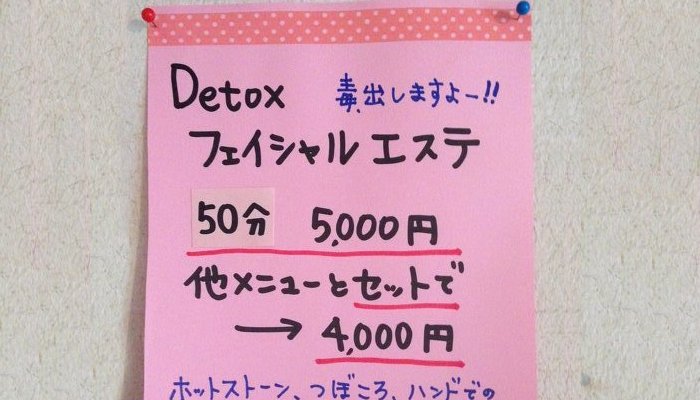 Detox 毒出しますよー!!
フェイシャル エステ
50分 5,000円
他メニューとセットで
→ 4,000円
ホットストーン、つぼころ、ハンドでの